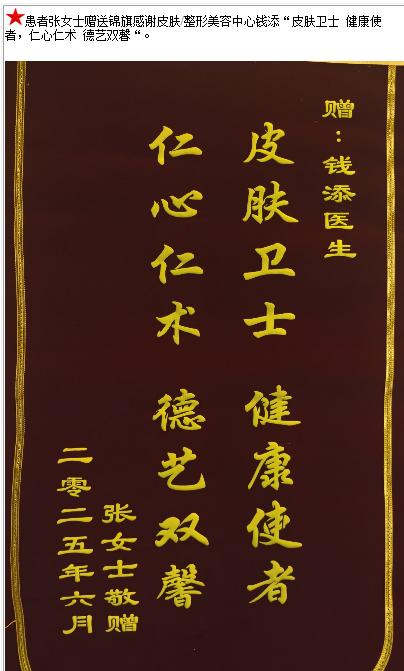 患者张女士赠送锦旗感谢皮肤/整形美容中心钱添“皮肤卫士 健康使
者，仁心仁术 德艺双馨“。
赠：钱添医生
皮肤卫士 健康使者
仁心仁术 德艺双馨
张女士敬赠
二零二五年六月